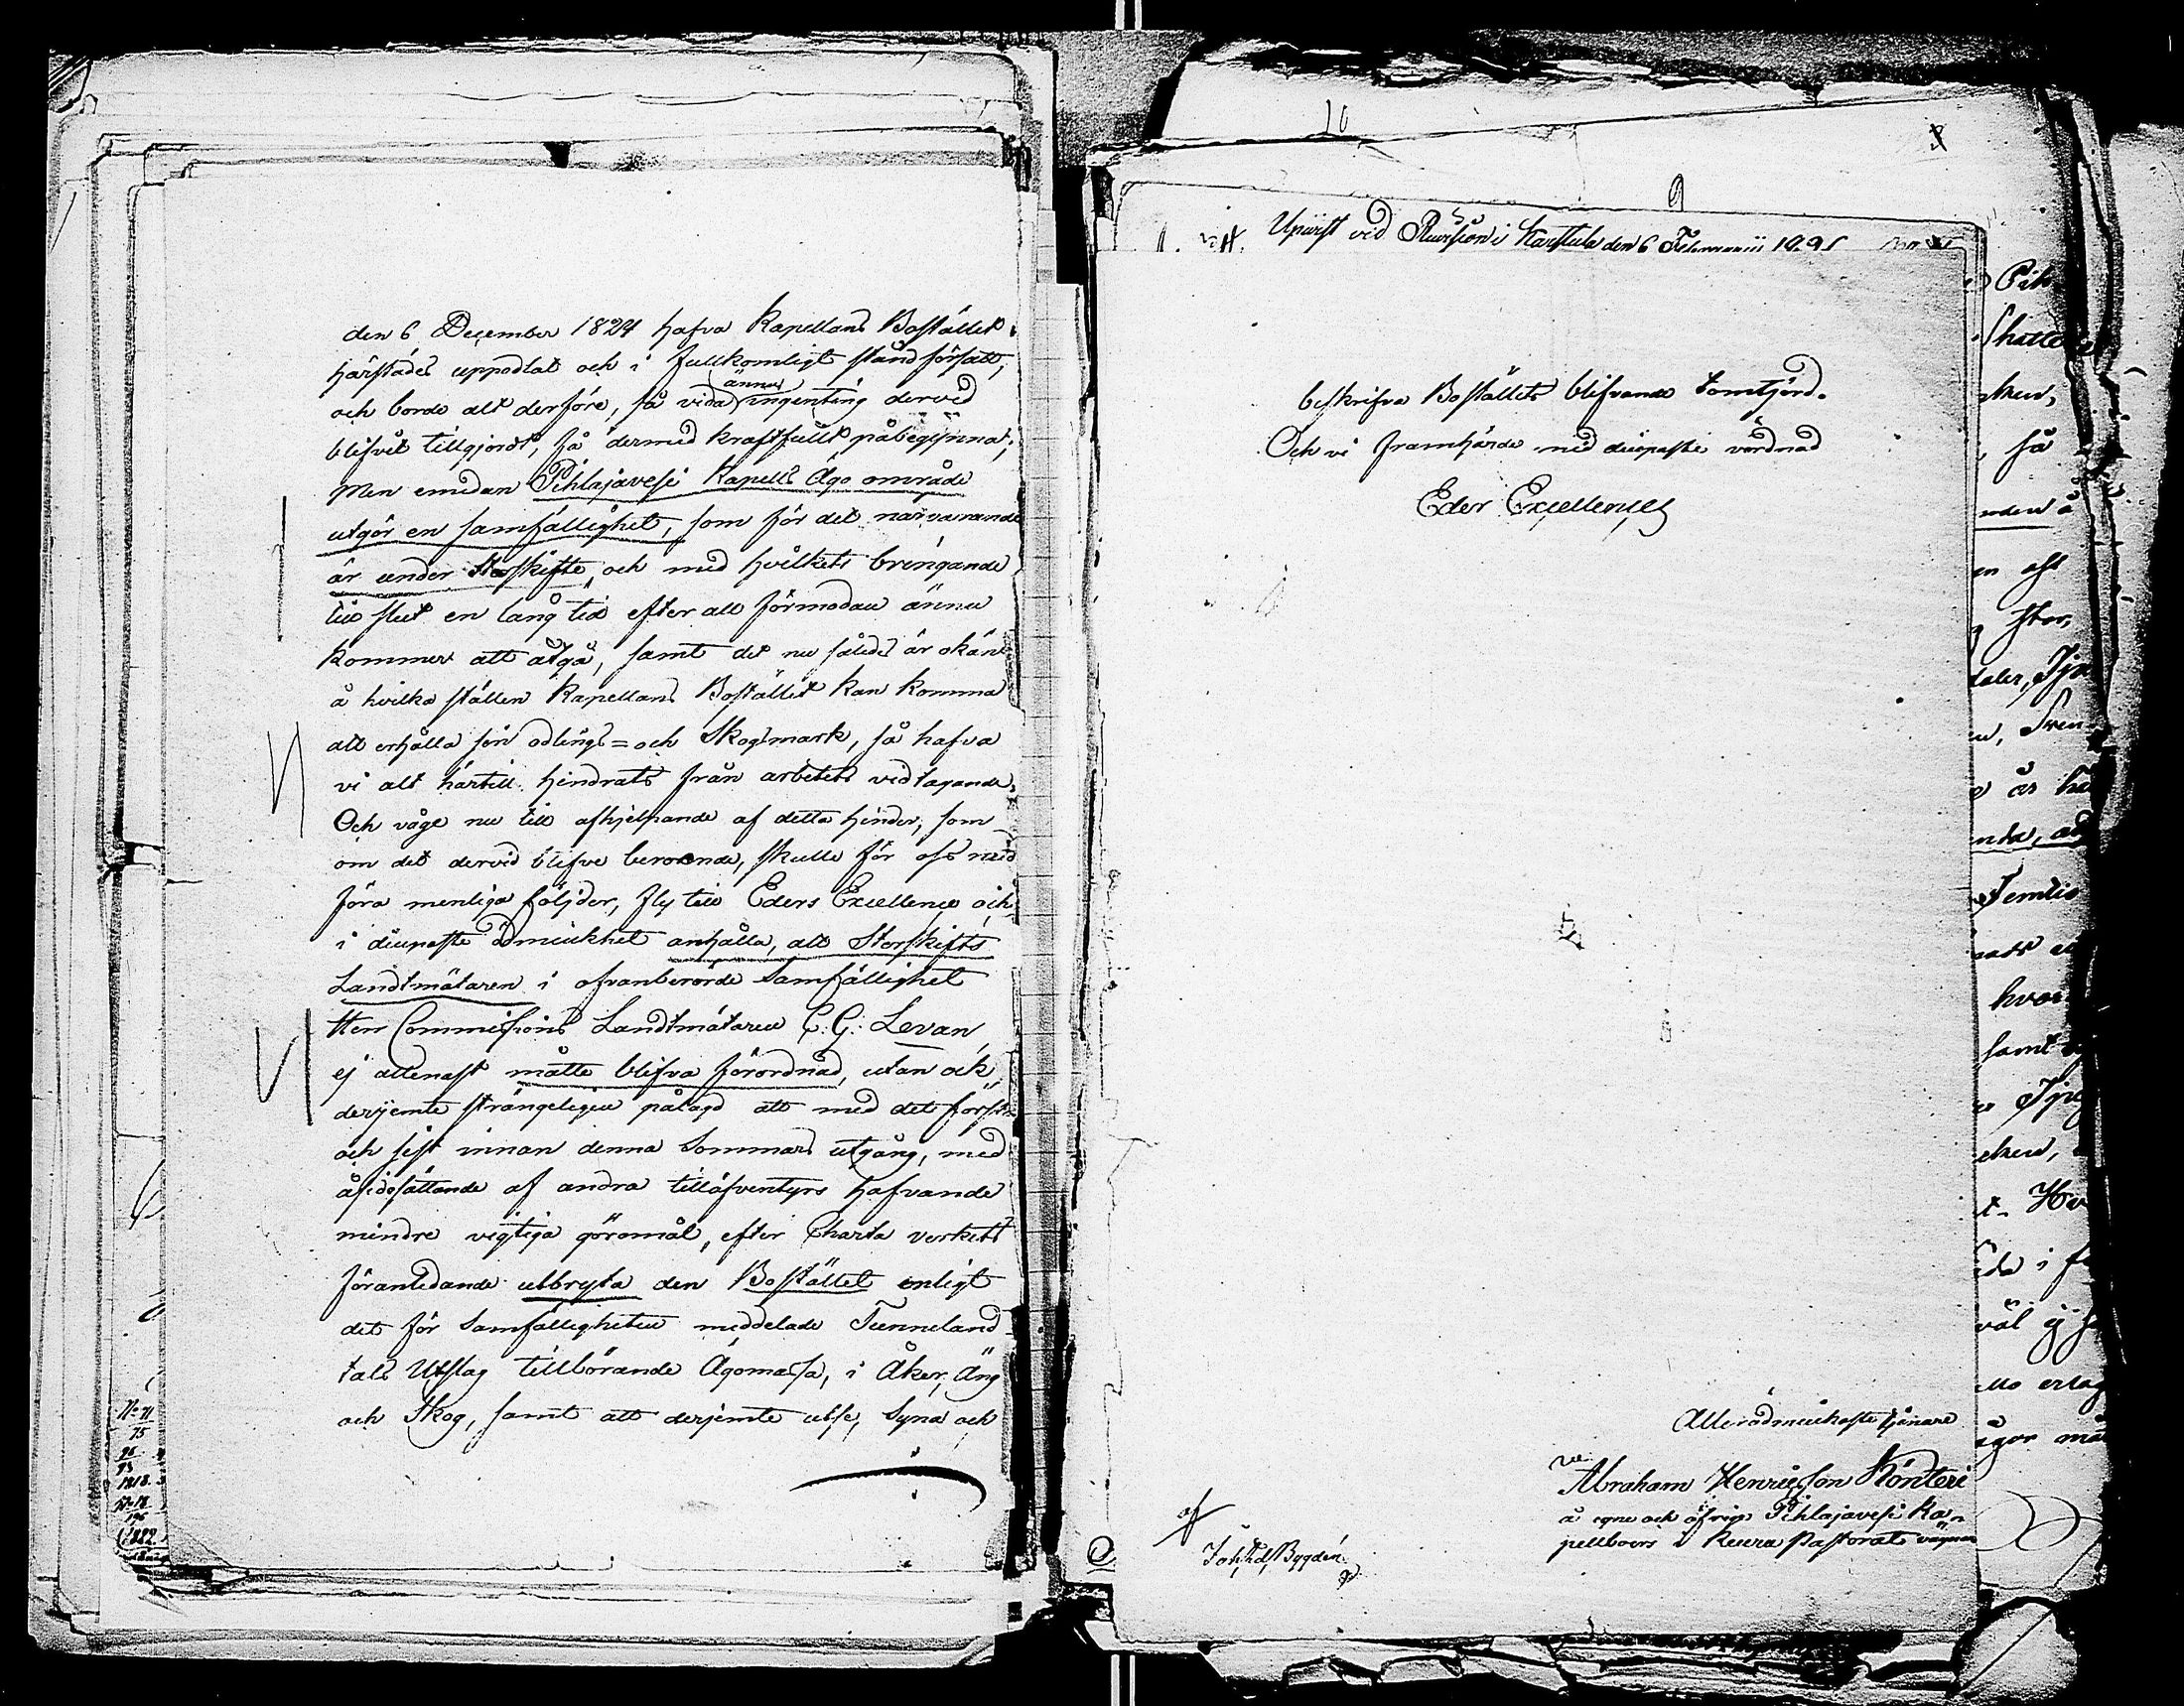 den 6 December 1824 hafva Kapellans Bostället
härstädes uppodlat och i fullkomligt stånd försatt,
och borde alt derföre, så vida ännu ingenting dervid
blifvit tillgjordt, få dermed kraftfullt påbegynnat;
Men emedan Pihlajavesi Kapells Ägo område
utgör en samfällighet, som för det närvarande
är under Storskifte, och med hvilkets bringande
till slut en lång tid efter all förmodan ännu
kommer att åtgå, samt det nu således är okänt
å hvilka ställen Kapellans Bostället kan komma
att erhålla sin odlings= och Skogsmark, så hafva
vi alt härtill hindrats från arbetets vidtagande.
Och våge nu till afhjelpande af detta hinder, som
om det dervid blifve beroende, skulle för oss med
föra menliga följder, fly till Eders Excellence och
i diupaste ödmiukhet anhålla, att Storskifts
Landtmätaren i ofvanberörde Samfällighet
Herr Commissions Landtmätaren C. G. Levan,
ej allenast måtte blifva förordnad, utan ock
derjemte strängeligen pålagd att med det första
och sist innan denna Sommars utgång, med
åsidosättande af andra tilläfventyrs hafvande
mindre vigtiga göromål, efter Charta verkets
föranledande utbryta den Bostället enligt
det för Samfälligheten meddelade Tunneland
tals Utslag tillhörande Ägomassa, i Åker, Äng
och Skog, samt att derjemte utse, Syna och
No 71
75
96
93
1818.
No 18
196
1882.
10
9
Upvist vid Revision i Karstula den 6 Februarii
beskrifva Boställets blifvande tomtjord.
Och vi framhärde med diupaste vördnad
Eder Excellences
Alleröadmiukaste tjenare
Abraham Henricsson Könteri
å egne och öfrige Pihlajavesi Ka=
pellboers i Keuru Pastorat vägnar
af
Joh. Fd. Bygdén
Pih
Skatte
så
Sven
är
Temlis
hvar
samt
väl ej